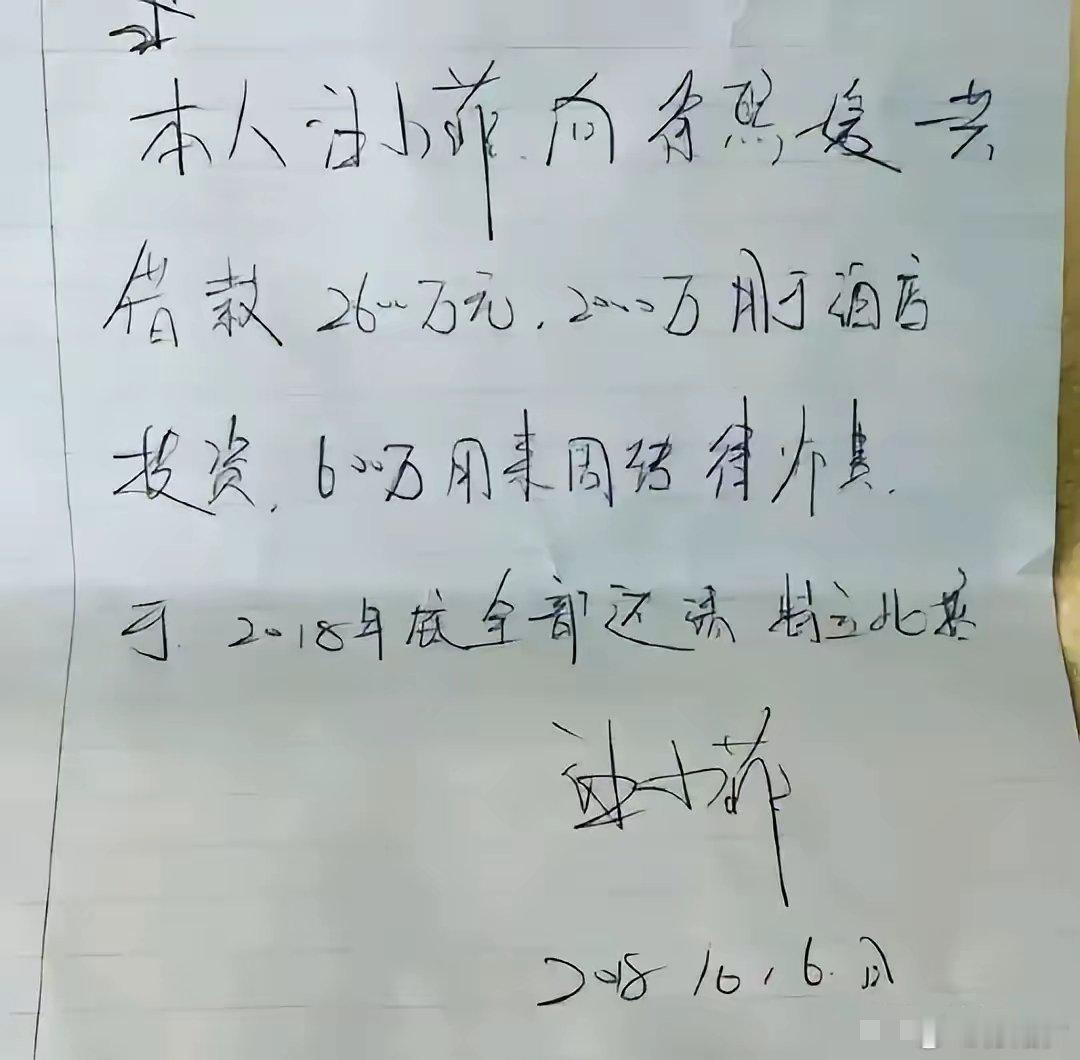 本人汪小菲.向徐熙媛共
借款2600万元.2000万用于酒店
投资.600万用来周转律师费.
于.2018年底全部还清 特立此据
汪小菲
2018.10.6.日